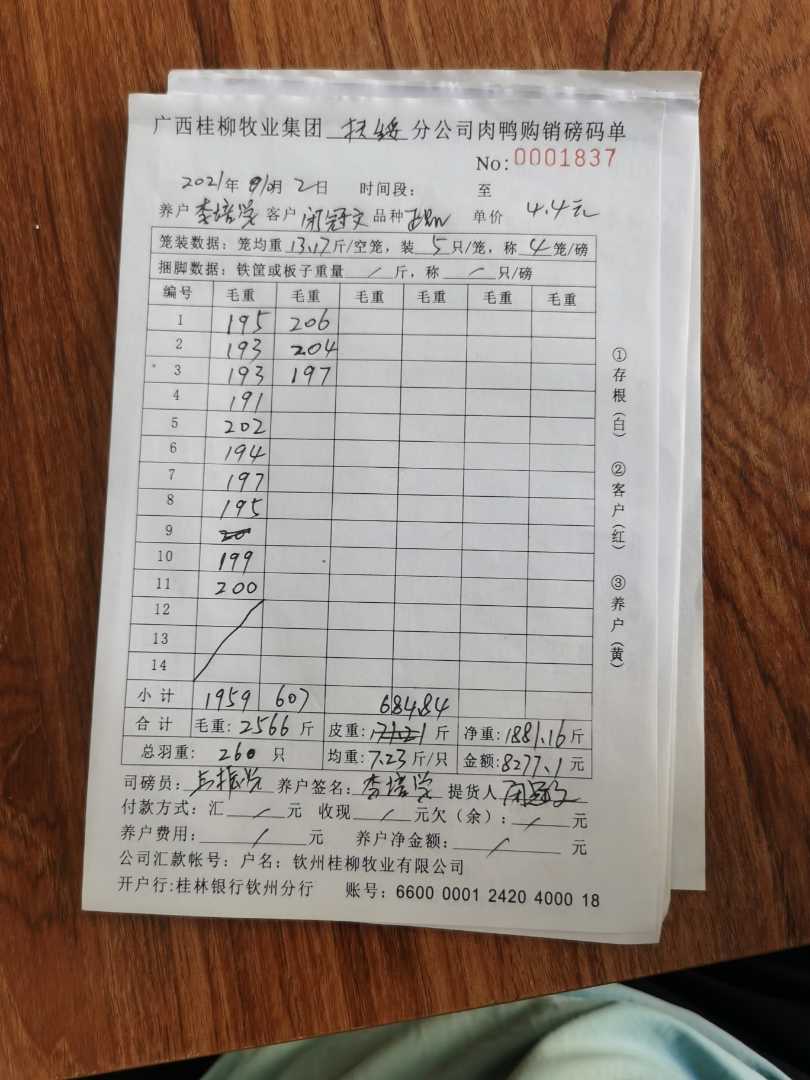 广西桂柳牧业集团 扶绥 分公司肉鸭购销磅码单
No: 0001837
2021年 9月 2日 时间段: 至
养户 李培学 客户 闭冠文 品种 单价 4.4元
笼装数据: 笼均重 13.17 斤/空笼, 装 5 只/笼, 称 4 笼/磅
捆脚数据: 铁筐或板子重量 / 斤, 称 / 只/磅
编号 毛重 毛重 毛重 毛重 毛重 毛重
1 195 206
2 193 204
3 193 197
4 191
5 202
6 194
7 197
8 195
9 20
10 199
11 200
12
13
14
小计 1959 607 684.84
合计 毛重: 2566 斤 皮重: 斤 净重: 1881.16 斤
总羽重: 260 只 均重: 7.23 斤/只 金额: 8277.1 元
司磅员: 养户签名: 李培学 提货人
付款方式: 汇 / 元 收现 / 元欠(余): / 元
养户费用: / 元 养户净金额: / 元
公司汇款帐号: 户名: 钦州桂柳牧业有限公司
开户行:桂林银行钦州分行 账号: 6600 0001 2420 4000 18
①存根(白) ②客户(红) ③养户(黄)